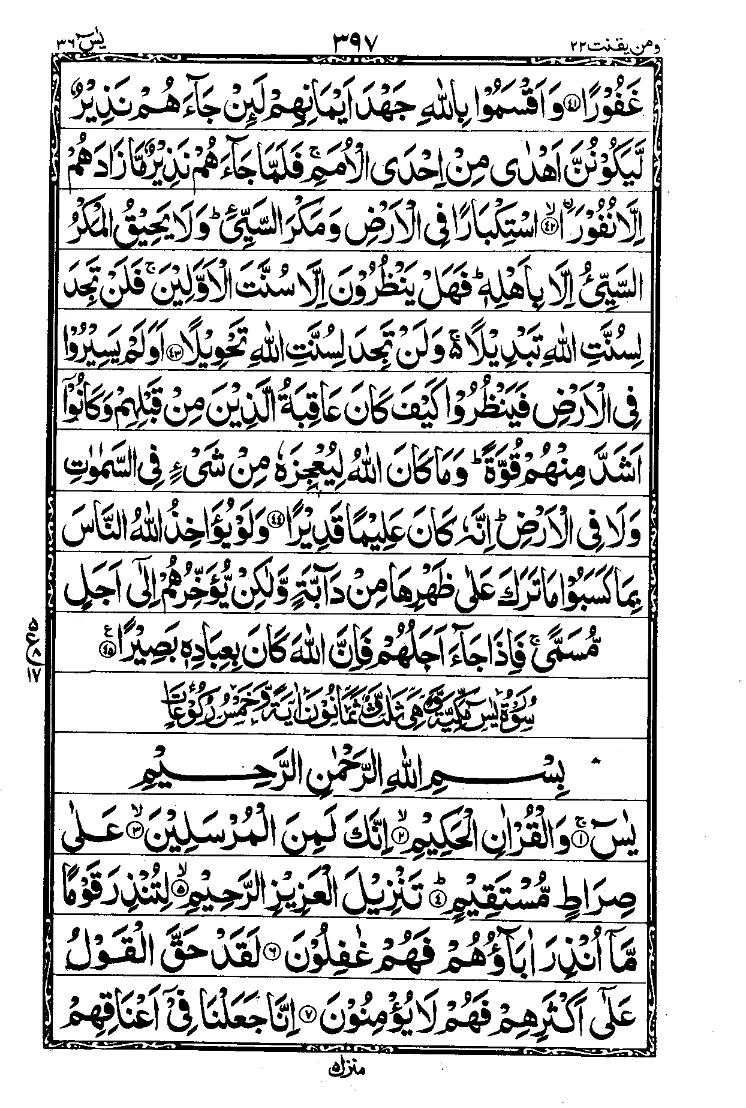 ومن يقنت ٢٢ ٣٩٧ يٰسٓ ٣٦
غَفُوْرًا ﴿٤١﴾ وَاَقْسَمُوْا بِاللّٰهِ جَهْدَ اَيْمَانِهِمْ لَىِٕنْ جَآءَهُمْ نَذِيْرٌ
لَّيَكُوْنُنَّ اَهْدٰى مِنْ اِحْدَى الْاُمَمِ ۚ فَلَمَّا جَآءَهُمْ نَذِيْرٌ مَّا زَادَهُمْ
اِلَّا نُفُوْرَا ۙ﴿٤٢﴾ اسْتِكْبَارًا فِى الْاَرْضِ وَمَكْرَ السَّيِّئِ ؕ وَلَا يَحِيْقُ الْمَكْرُ
السَّيِّئُ اِلَّا بِاَهْلِهٖ ؕ فَهَلْ يَنْظُرُوْنَ اِلَّا سُنَّتَ الْاَوَّلِيْنَ ۚ فَلَنْ تَجِدَ
لِسُنَّتِ اللّٰهِ تَبْدِيْلًا ۚ۬ وَلَنْ تَجِدَ لِسُنَّتِ اللّٰهِ تَحْوِيْلًا ﴿٤٣﴾ اَوَلَمْ يَسِيْرُوْا
فِى الْاَرْضِ فَيَنْظُرُوْا كَيْفَ كَانَ عَاقِبَةُ الَّذِيْنَ مِنْ قَبْلِهِمْ وَكَانُوْۤا
اَشَدَّ مِنْهُمْ قُوَّةً ؕ وَمَا كَانَ اللّٰهُ لِيُعْجِزَهٗ مِنْ شَىْءٍ فِى السَّمٰوٰتِ
وَلَا فِى الْاَرْضِ ؕ اِنَّهٗ كَانَ عَلِيْمًا قَدِيْرًا ﴿٤٤﴾ وَلَوْ يُؤَاخِذُ اللّٰهُ النَّاسَ
بِمَا كَسَبُوْا مَا تَرَكَ عَلٰى ظَهْرِهَا مِنْ دَآبَّةٍ وَّلٰكِنْ يُّؤَخِّرُهُمْ اِلٰٓى اَجَلٍ
مُّسَمًّى ۚ فَاِذَا جَآءَ اَجَلُهُمْ فَاِنَّ اللّٰهَ كَانَ بِعِبَادِهٖ بَصِيْرًا ﴿٤٥﴾ ع
٥ ع ٨ ١٧
سُوْرَةُ يٰسٓ مَكِّيَّةٌ وَّهِىَ ثَلٰثٌ وَّثَمَانُوْنَ اٰيَةً وَّخَمْسُ رُكُوْعَاتٍ
بِسْمِ اللّٰهِ الرَّحْمٰنِ الرَّحِيْمِ
يٰسٓ ۚ﴿١﴾ وَالْقُرْاٰنِ الْحَكِيْمِ ۙ﴿٢﴾ اِنَّكَ لَمِنَ الْمُرْسَلِيْنَ ۙ﴿٣﴾ عَلٰى
صِرَاطٍ مُّسْتَقِيْمٍ ؕ﴿٤﴾ تَنْزِيْلَ الْعَزِيْزِ الرَّحِيْمِ ۙ﴿٥﴾ لِتُنْذِرَ قَوْمًا
مَّاۤ اُنْذِرَ اٰبَآؤُهُمْ فَهُمْ غٰفِلُوْنَ ﴿٦﴾ لَقَدْ حَقَّ الْقَوْلُ
عَلٰٓى اَكْثَرِهِمْ فَهُمْ لَا يُؤْمِنُوْنَ ﴿٧﴾ اِنَّا جَعَلْنَا فِىْۤ اَعْنَاقِهِمْ
منزل ٥